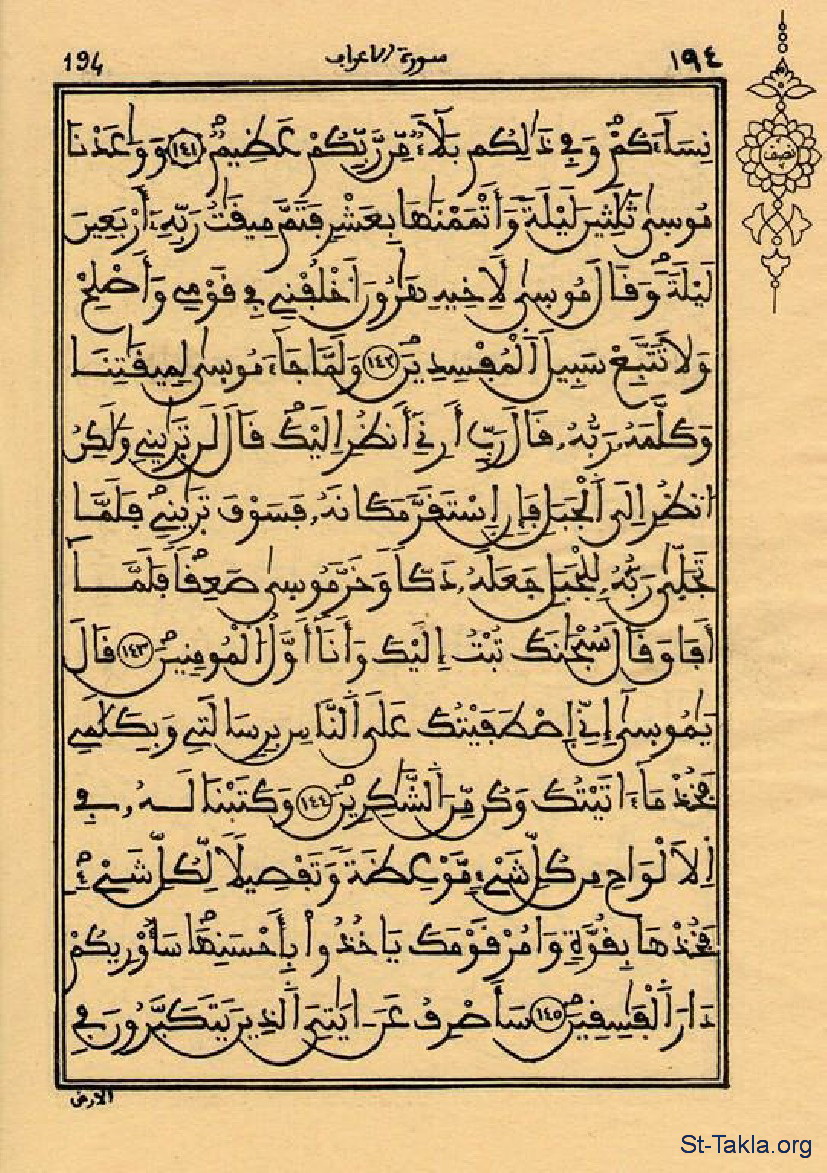 194 سورة الأعراف ١٩٤
نصف
نِسَآءَكُمْ وَفِے ذَٰلِكُم بَلَآءٌ مِّن رَّبِّكُمْ عَظِيمٌ ١٤١ وَوَٰعَدْنَا
مُوسِىٰ ثَلَٰثِينَ لَيْلَةً وَأَتْمَمْنَٰهَا بِعَشْرٍ فَتَمَّ مِيقَٰتُ رَبِّهِۦٓ أَرْبَعِينَ
لَيْلَةً وَقَالَ مُوسِىٰ لَأَخِيهِ هَٰرُونَ ٱخْلُفْنِے فِے قَوْمِے وَأَصْلِحْ
وَلَا تَتَّبِعْ سَبِيلَ ٱلْمُفْسِدِينَ ١٤٢ وَلَمَّا جَآءَ مُوسِىٰ لِمِيقَٰتِنَا
وَكَلَّمَهُۥ رَبُّهُۥ قَالَ رَبِّ أَرِنِے أَنظُرِ اِلَيْكَ قَالَ لَن تَر۪ىٰنِے وَلَٰكِنُ
اُنظُرِ اِلَى ٱلْجَبَلِ فَإِنِ اِسْتَقَرَّ مَكَانَهُۥ فَسَوْفَ تَر۪ىٰنِے فَلَمَّا
تَجَلِّىٰ رَبُّهُۥ لِلْجَبَلِ جَعَلَهُۥ دَكّاً وَخَرَّ مُوسِىٰ صَعِقاً فَلَمَّآ
أَفَاقَ قَالَ سُبْحَٰنَكَ تُبْتُ إِلَيْكَ وَأَنَآ أَوَّلُ ٱلْمُومِنِينَ ١٤٣ قَالَ
يَٰمُوسِىٰٓ إِنِّے اِصْطَفَيْتُكَ عَلَى ٱلنَّاسِ بِرِسَالَتِے وَبِكَلَٰمِے
فَخُذْ مَآ ءَاتَيْتُكَ وَكُن مِّنَ ٱلشَّٰكِرِينَ ١٤٤ وَكَتَبْنَا لَهُۥ فِے
اِ۬لَالْوَاحِ مِن كُلِّ شَےْءٍ مَّوْعِظَةً وَتَفْصِيلاً لِّكُلِّ شَےْءٍ
فَخُذْهَا بِقُوَّةٍ وَامُرْ قَوْمَكَ يَاخُذُواْ بِأَحْسَنِهَا سَأُوْرِيكُمْ
دَارَ ٱلْفَٰسِقِينَ ١٤٥ سَأَصْرِفُ عَنَ اٰيَٰتِيَ ٱلذِينَ يَتَكَبَّرُونَ فِے
الارض
St-Takla.org